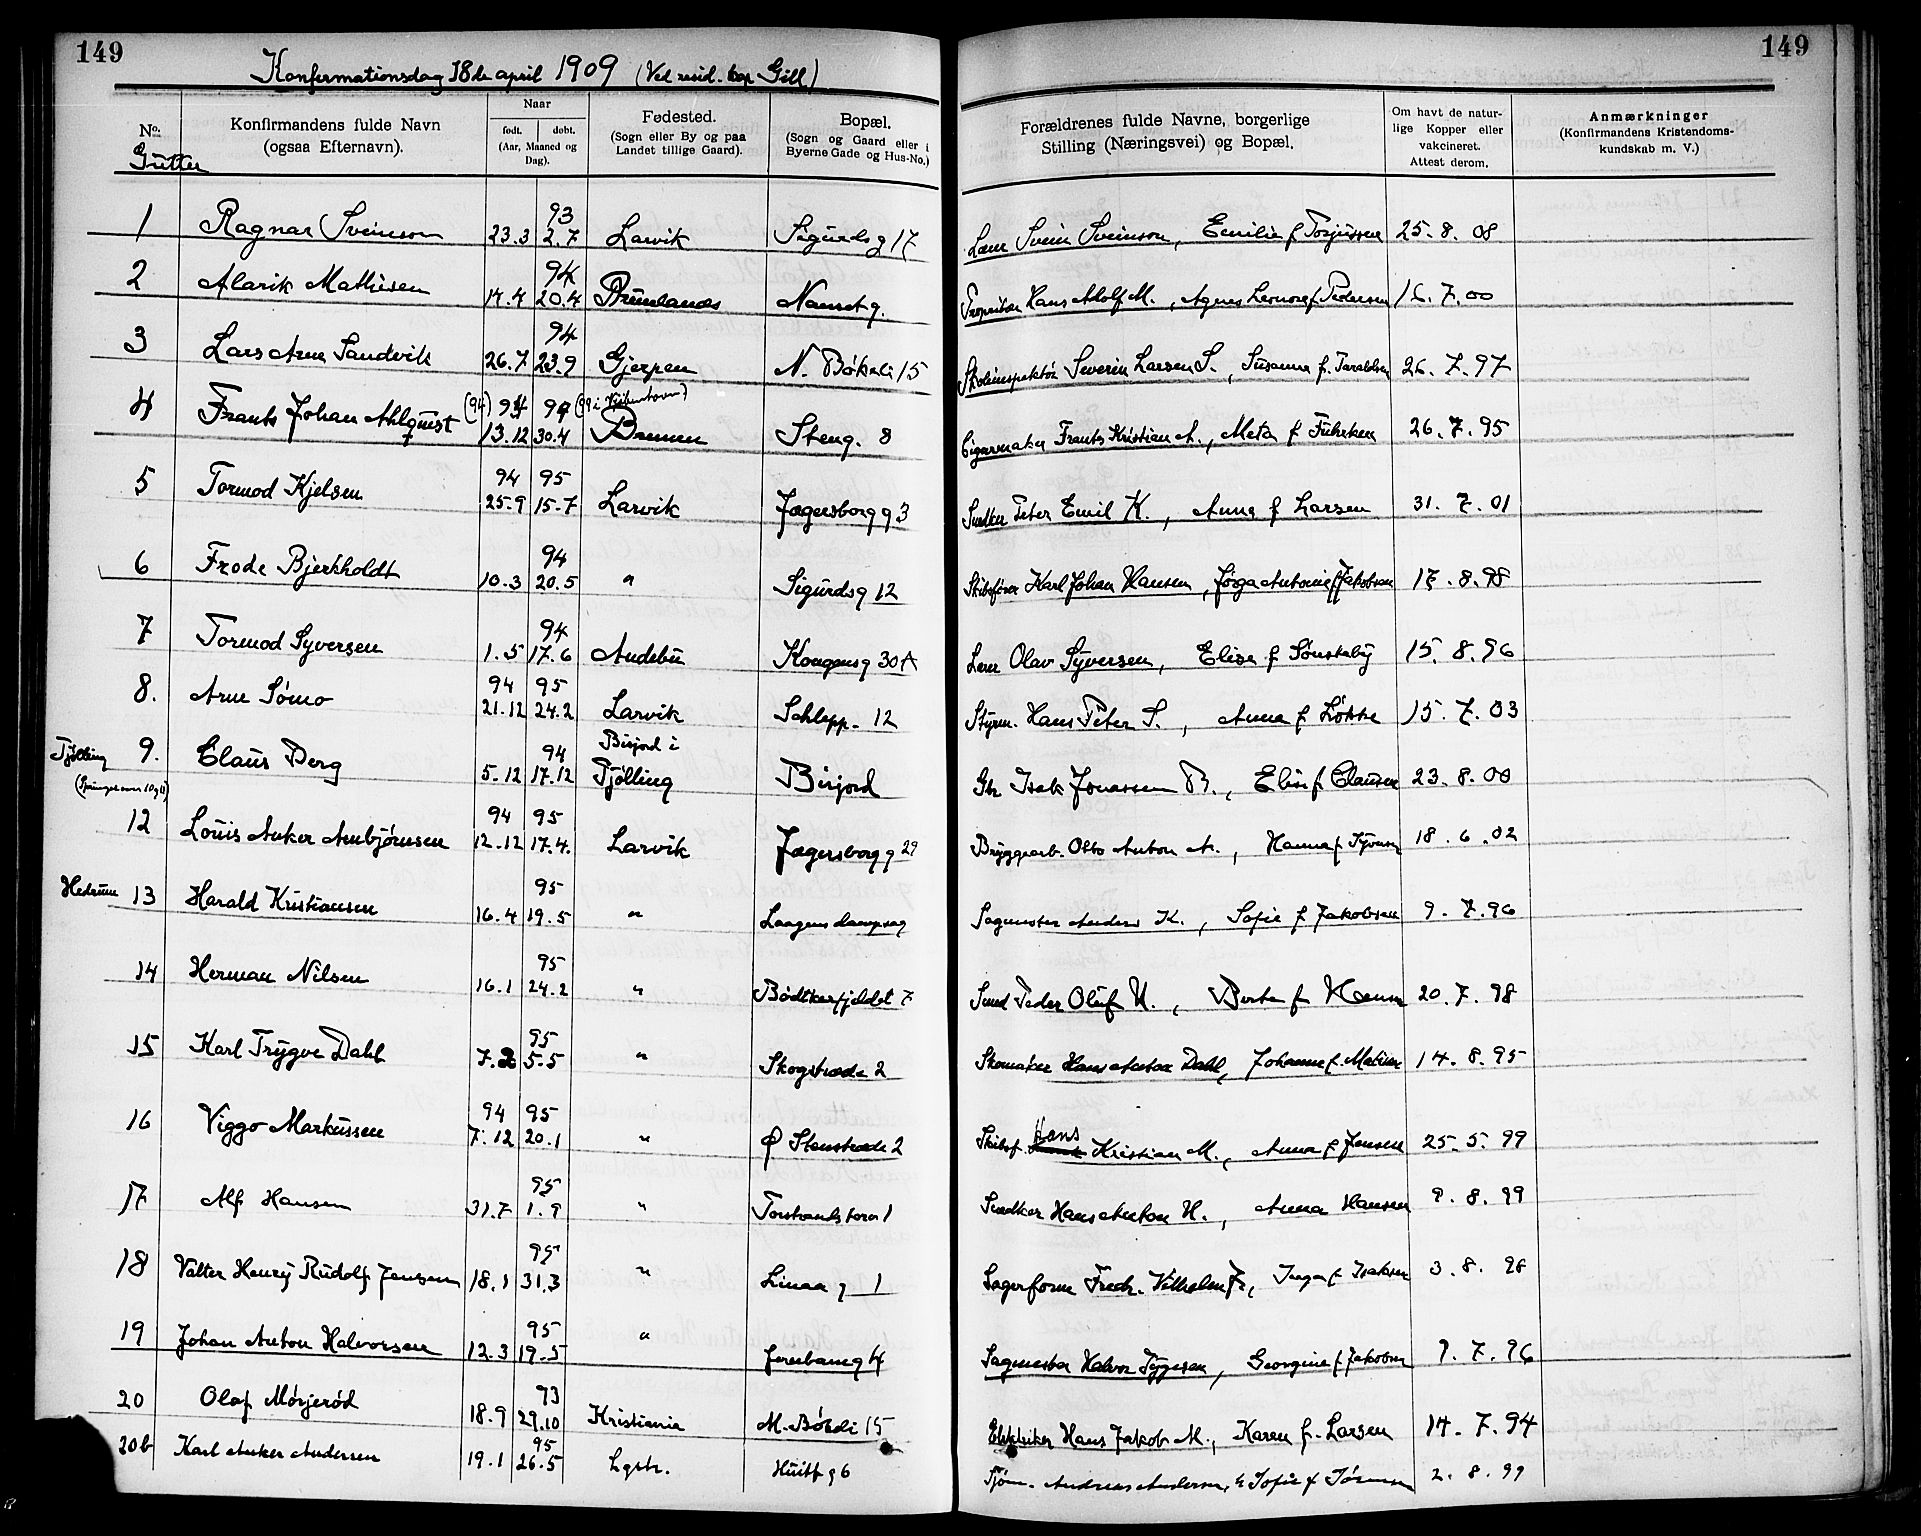 149
149
Konfirmationsdag 18de april 1909 (Ved resid. kap. Gill)
No. Konfirmandens fulde Navn (ogsaa Efternavn). Naar født. døbt. (Aar, Maaned og Dag). Fødested. (Sogn eller By og paa Landet tillige Gaard). Bopæl. (Sogn og Gaard eller i Byerne Gade og Hus-No.) Forældrenes fulde Navne, borgerlige Stilling (Næringsvei) og Bopæl. Om havt de naturlige Kopper eller vakcineret. Attest derom. Anmærkninger (Konfirmandens Kristendomskundskab m. V.)
Gutter
1 Ragnar Sveinson 23.3 93 2.7 Larvik Sigurdsg 17 Lærer Svein Sveinson, Emilie f Torjussen 25.8.08
2 Alarik Mathisen 14.4 94 20.4 Brunlanes Nansetg. Proprietær Hans Adolf M., Agnes Leonore f Pedersen 16.7.00
3 Lars Arne Sandvik 26.7 94 23.9 Gjerpen N. Bøkeli 15 Skoleinspektør Severin Larsen S., Susanne f. Taraldsen 26.7.97
4 Frants Johan Ahlquist (94) 94 13.12 99 30.4 (99 i Kjøbenhavn) Bremen Steng. 8 Cigarmaker Frants Kristian A., Meta f Fuhrken 26.7.95
5 Tormod Kjelsen 94 25.9 95 15.7 Larvik Jægersborgg 3 Snedker Peter Emil K., Anna f Larsen 31.7.01
6 Frode Bjerkholdt 10.3 94 20.5 " Sigurdsg 12 Skibsfører Karl Johan Hansen, Jørga Antonie f Jakobsen 17.8.98
7 Tormod Syversen 1.5 94 17.6 Andebu Kongensg 30A Lærer Olav Syversen, Elise f Sønsteby 15.8.96
8. Arne Sømo 94 21.12 95 24.2 Larvik Schlepp. 12 Styrm. Hans Peter S., Anna f Løkke 15.7.03
Tjølling 9. Claus Berg 5.12 94 17.12 Birjord i Tjølling Birjord Gbr Isak Jonassen B., Elise f Clausen 23.8.00
(Springes over 10 og 11)
12 Louis Anker Arnbjørnsen 94 12.12 95 17.4. Larvik Jægersborgg 29 Bryggearb. Otto Anton A., Hanna f Syversen 18.6.02
Hedrum 13 Harald Kristiansen 16.4 95 19.5 " Laagens dampsag Sagmester Anders K., Sofie f Jakobsen 9.7.96
14 Herman Nilsen 16.1 95 24.2 " Bødtkerfjeldet 7 Smed Peder Oluf N., Berte f Hansen 20.7.98
15 Karl Trygve Dahl 7.2 95 5.5 " Skogstræde 2 Skomaker Hans Anton Dahl, Johanne f. Matisen 14.8.95
16 Viggo Markussen 94 7.12 95 20.1 " Ø Stenstræde 2 Skibsf. Hans Kristian M., Anna f Jensen 25.5.99
17 Alf Hansen 31.7 95 1.9 " Torstrands torv 1 Snedker Hans Anton H., Anna Hansen 9.8.99
18 Valter Henry Rudolf Jensen 18.1 95 31.3 " Linaag 1 Lagerform Fredr. Vilhelm J., Inga f Isaksen 3.8.98
19 Johan Anton Halvorsen 12.3 95 19.5 " Jernbaneg 4 Sagmester Halvor Tygesen, Georgine f Jakobsen 9.7.96
20 Olaf Mørjerød 18.9 93 29.10 Kristiania M. Bøkeli 15 Elektriker Hans Jakob M., Karen f. Larsen 14.7.94
20b Karl Anker Andersen 19.1 95 26.5 Lgstr. Huitfg 6 Sjøm. Andreas Andersen, & Sofie f 2.8.99